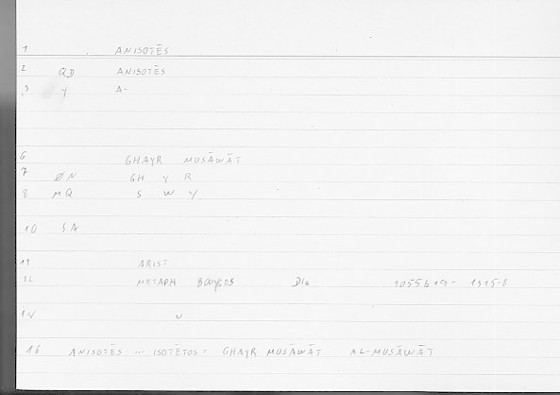 1 ANISOTĒS
2 QD ANISOTĒS
3 Y A-
6 GHAYR MUSĀWĀT
7 ØN GH Y R
8 MQ S W Y
10 SA
11 ARIST
12 METAPH BOUYGES 1055b
14 U
16 ANISOTĒS ... ISOTĒTOS: GHAYR MUSĀWĀT AL-MUSĀWĀT